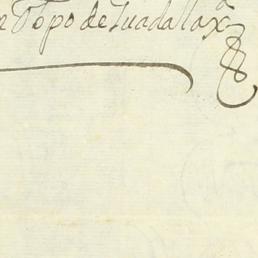 Topo de Guadalaxa